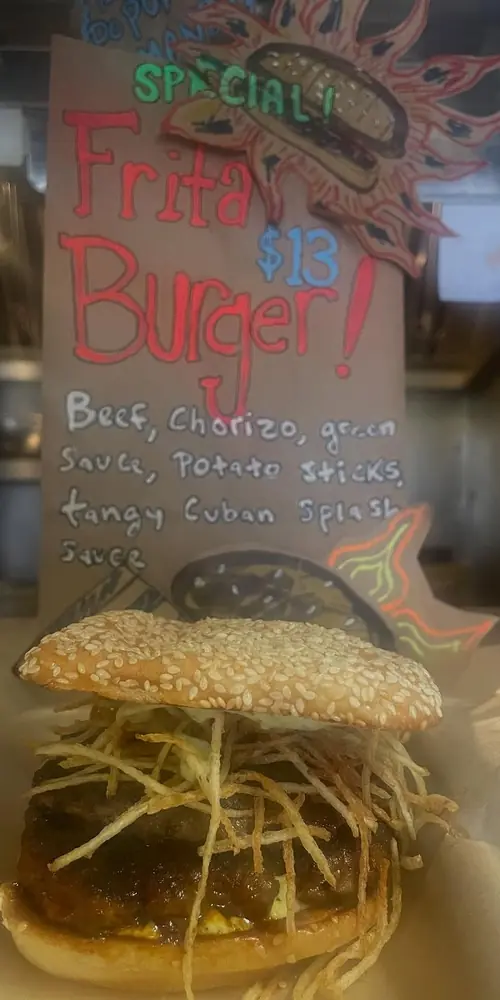 SPECIAL!
Frita
$13
Burger!
Beef, Chorizo, green
Sauce, Potato Sticks,
tangy Cuban Splash
Sauce